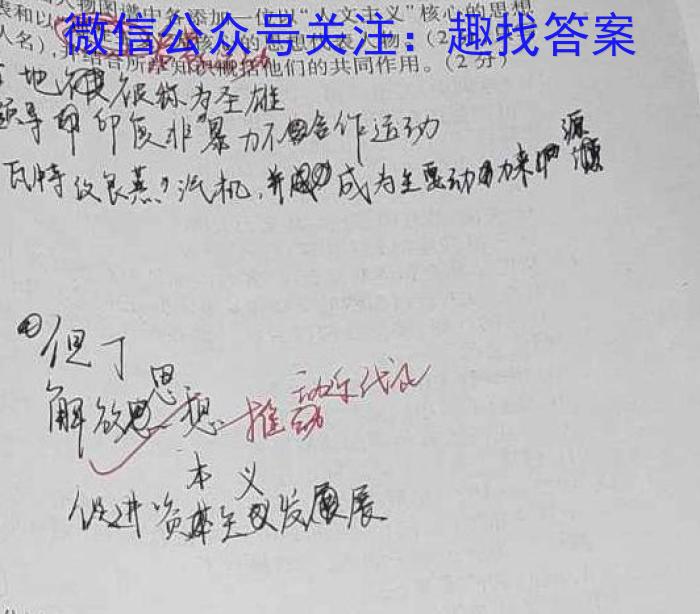 人物图谱中各添加一位以“人文主义”核心的思想
微信公众号关注：趣找答案
知识概括他们的共同作用。(2分)
地 被称为圣雄
领导印度非暴力不合作运动
瓦特改良蒸汽机,并成为主要动力来源
①但丁
解放思想 推动近代化
促进资本主义发展